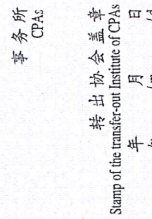 事务所
CPAs
转出协会盖章
Stamp of the transfer-out Institute of CPAs
年 月 日